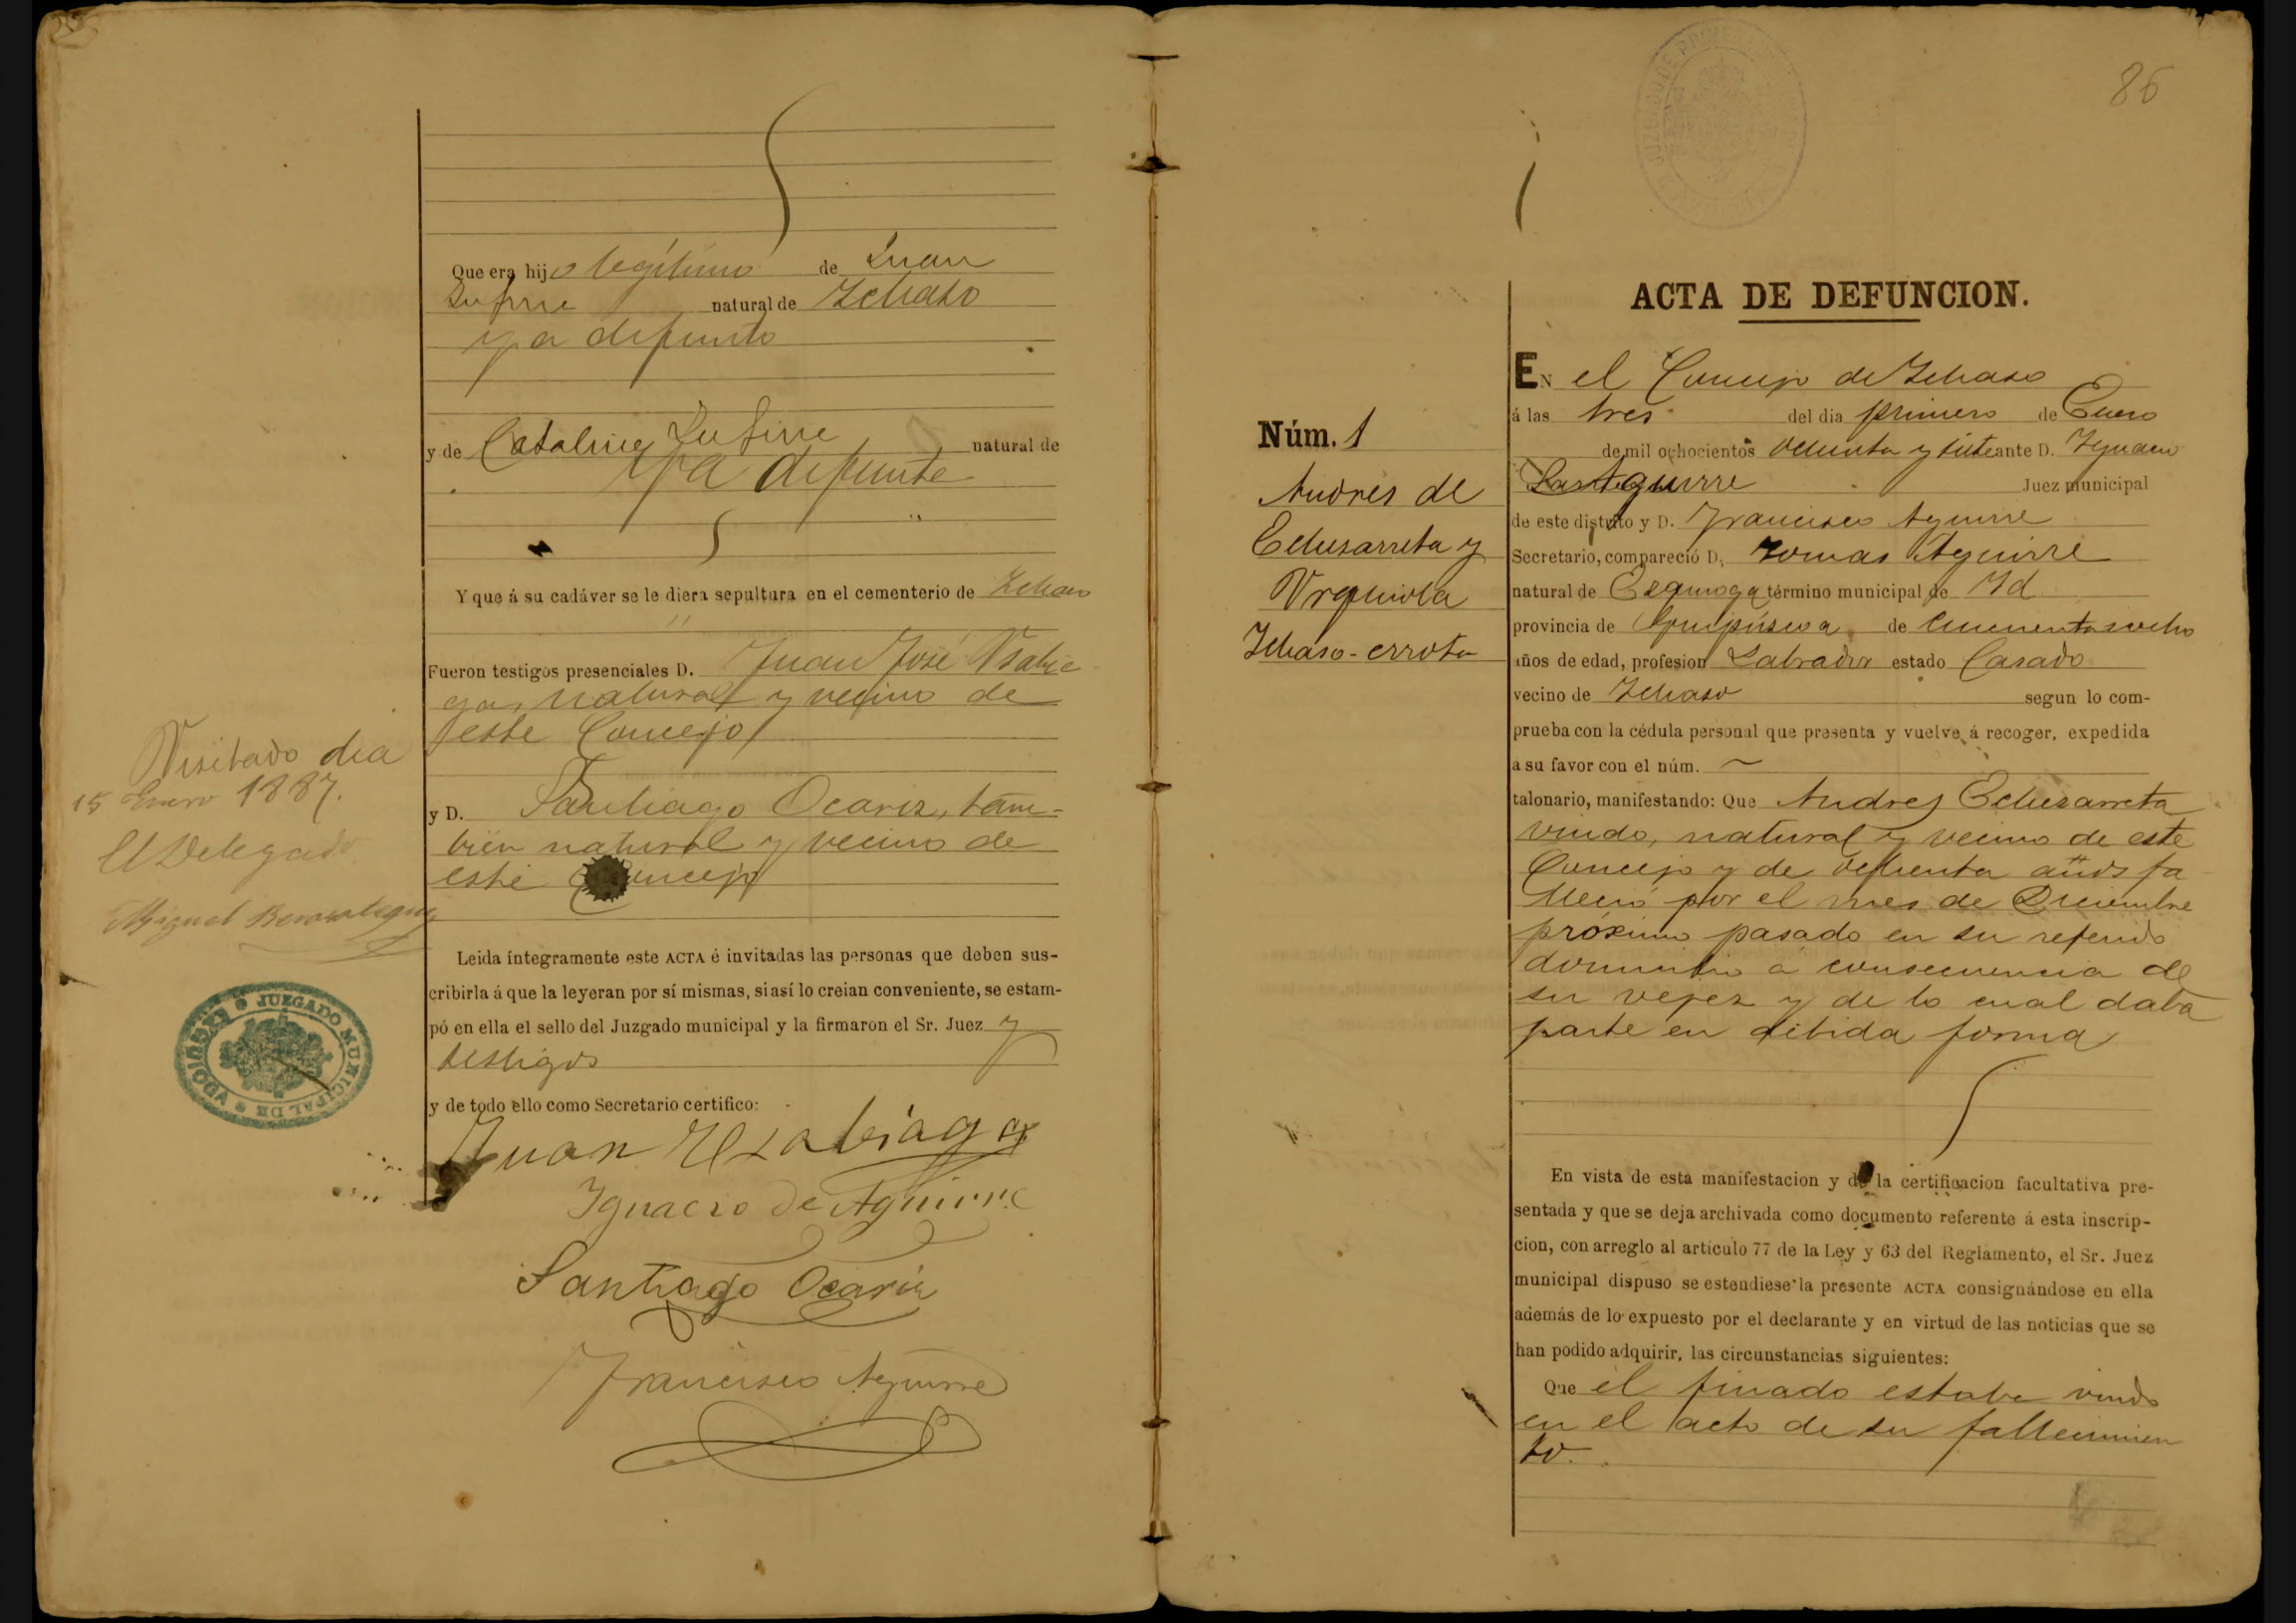 Que era hijo legítimo de Juan
natural de Ichaso
ya difunto
y de Catalina natural de
ya difunta
Y que á su cadáver se le diera sepultura en el cementerio de Ichaso
Fueron testigos presenciales D. Juan José Usabia
ga, natural y vecino de
este Concejo
y D. Santiago Ocariz, tam-
bien natural y vecino de
este Concejo
Leida íntegramente este ACTA é invitadas las personas que deben sus-
cribirla á que la leyeran por sí mismas, si así lo creian conveniente, se estam-
pó en ella el sello del Juzgado municipal y la firmaron el Sr. Juez y
testigos
y de todo ello como Secretario certifico:
Juan Usabiaga
Ignacio de Aguirre
Santiago Ocariz
Francisco Aguirre
Visitado dia
15 Enero 1887.
El Delegado
Miguel
JUZGADO MUNICIPAL DE
86
ACTA DE DEFUNCION.
Núm. 1
Andrés de
Echezarreta y
Urquiola
Ichaso-errota
EN el Concejo de Ichaso
á las tres del dia primero de Enero
de mil ochocientos ochenta y siete ante D. Ignacio
Aguirre Juez municipal
de este distrito y D. Francisco Aguirre
Secretario, compareció D. Tomas Aguirre
natural de Ezquioga término municipal de Id
provincia de Guipúzcoa de cincuenta y ocho
años de edad, profesion Labrador estado Casado
vecino de Ichaso segun lo com-
prueba con la cédula personal que presenta y vuelve á recoger, expedida
a su favor con el núm. ~
talonario, manifestando: Que Andres Echezarreta
viudo, natural y vecino de este
Concejo y de años fa
lleció por el mes de Diciembre
próximo pasado en su referido
domicilio á consecuencia de
su vejez y de lo cual daba
parte en debida forma
En vista de esta manifestacion y de la certificacion facultativa pre-
sentada y que se deja archivada como documento referente á esta inscrip-
cion, con arreglo al artículo 77 de la Ley y 63 del Reglamento, el Sr. Juez
municipal dispuso se estendiese la presente ACTA consignándose en ella
además de lo expuesto por el declarante y en virtud de las noticias que se
han podido adquirir, las circunstancias siguientes:
Que el finado estaba viudo
en el acto de su fallecimien
to.